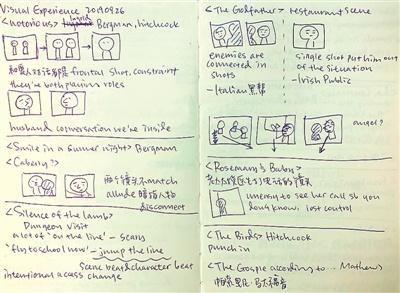 Visual Experience 20190926
<Notorious> Ingrid Bergman, hitchcock
frontal shot, constraint
they're both playing roles
husband conversation we're inside
<Smile in a Summer night> Bergman
<Cabery?>
两个镜头不match
allude 暗指人物
disconnect
<Silence of the lamb>
Dungeon visit
a lot of 'on the line' – scary
'fly to school now' – jump the line
Scene beat & character beat
intentional access change
<The Godfather> restaurant scene
enemies are
connected in
shots
– Italian 黑帮
single shot put him out
of the situation
– Irish Public
angel?
<Rosemary's Baby>
uneasy to see her call sb you
don't know, lost control
<The Birds> Hitchcock
punch in
<The Gosple according to ... Mathew>